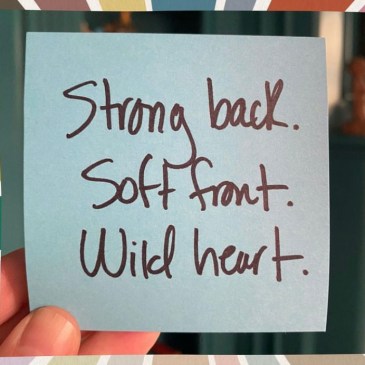 Strong back.
Soft front.
Wild heart.